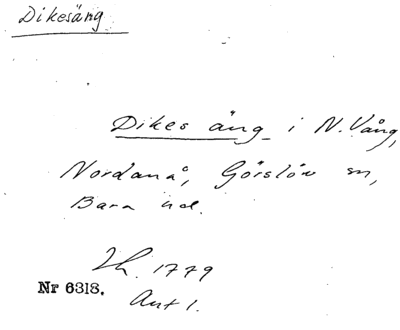 Dikesäng
Dikes äng i N. Vång,
Nordanå, Görslöv sn,
Bara hd.
Lh. 1779
Nr 6318.
Akt 1.